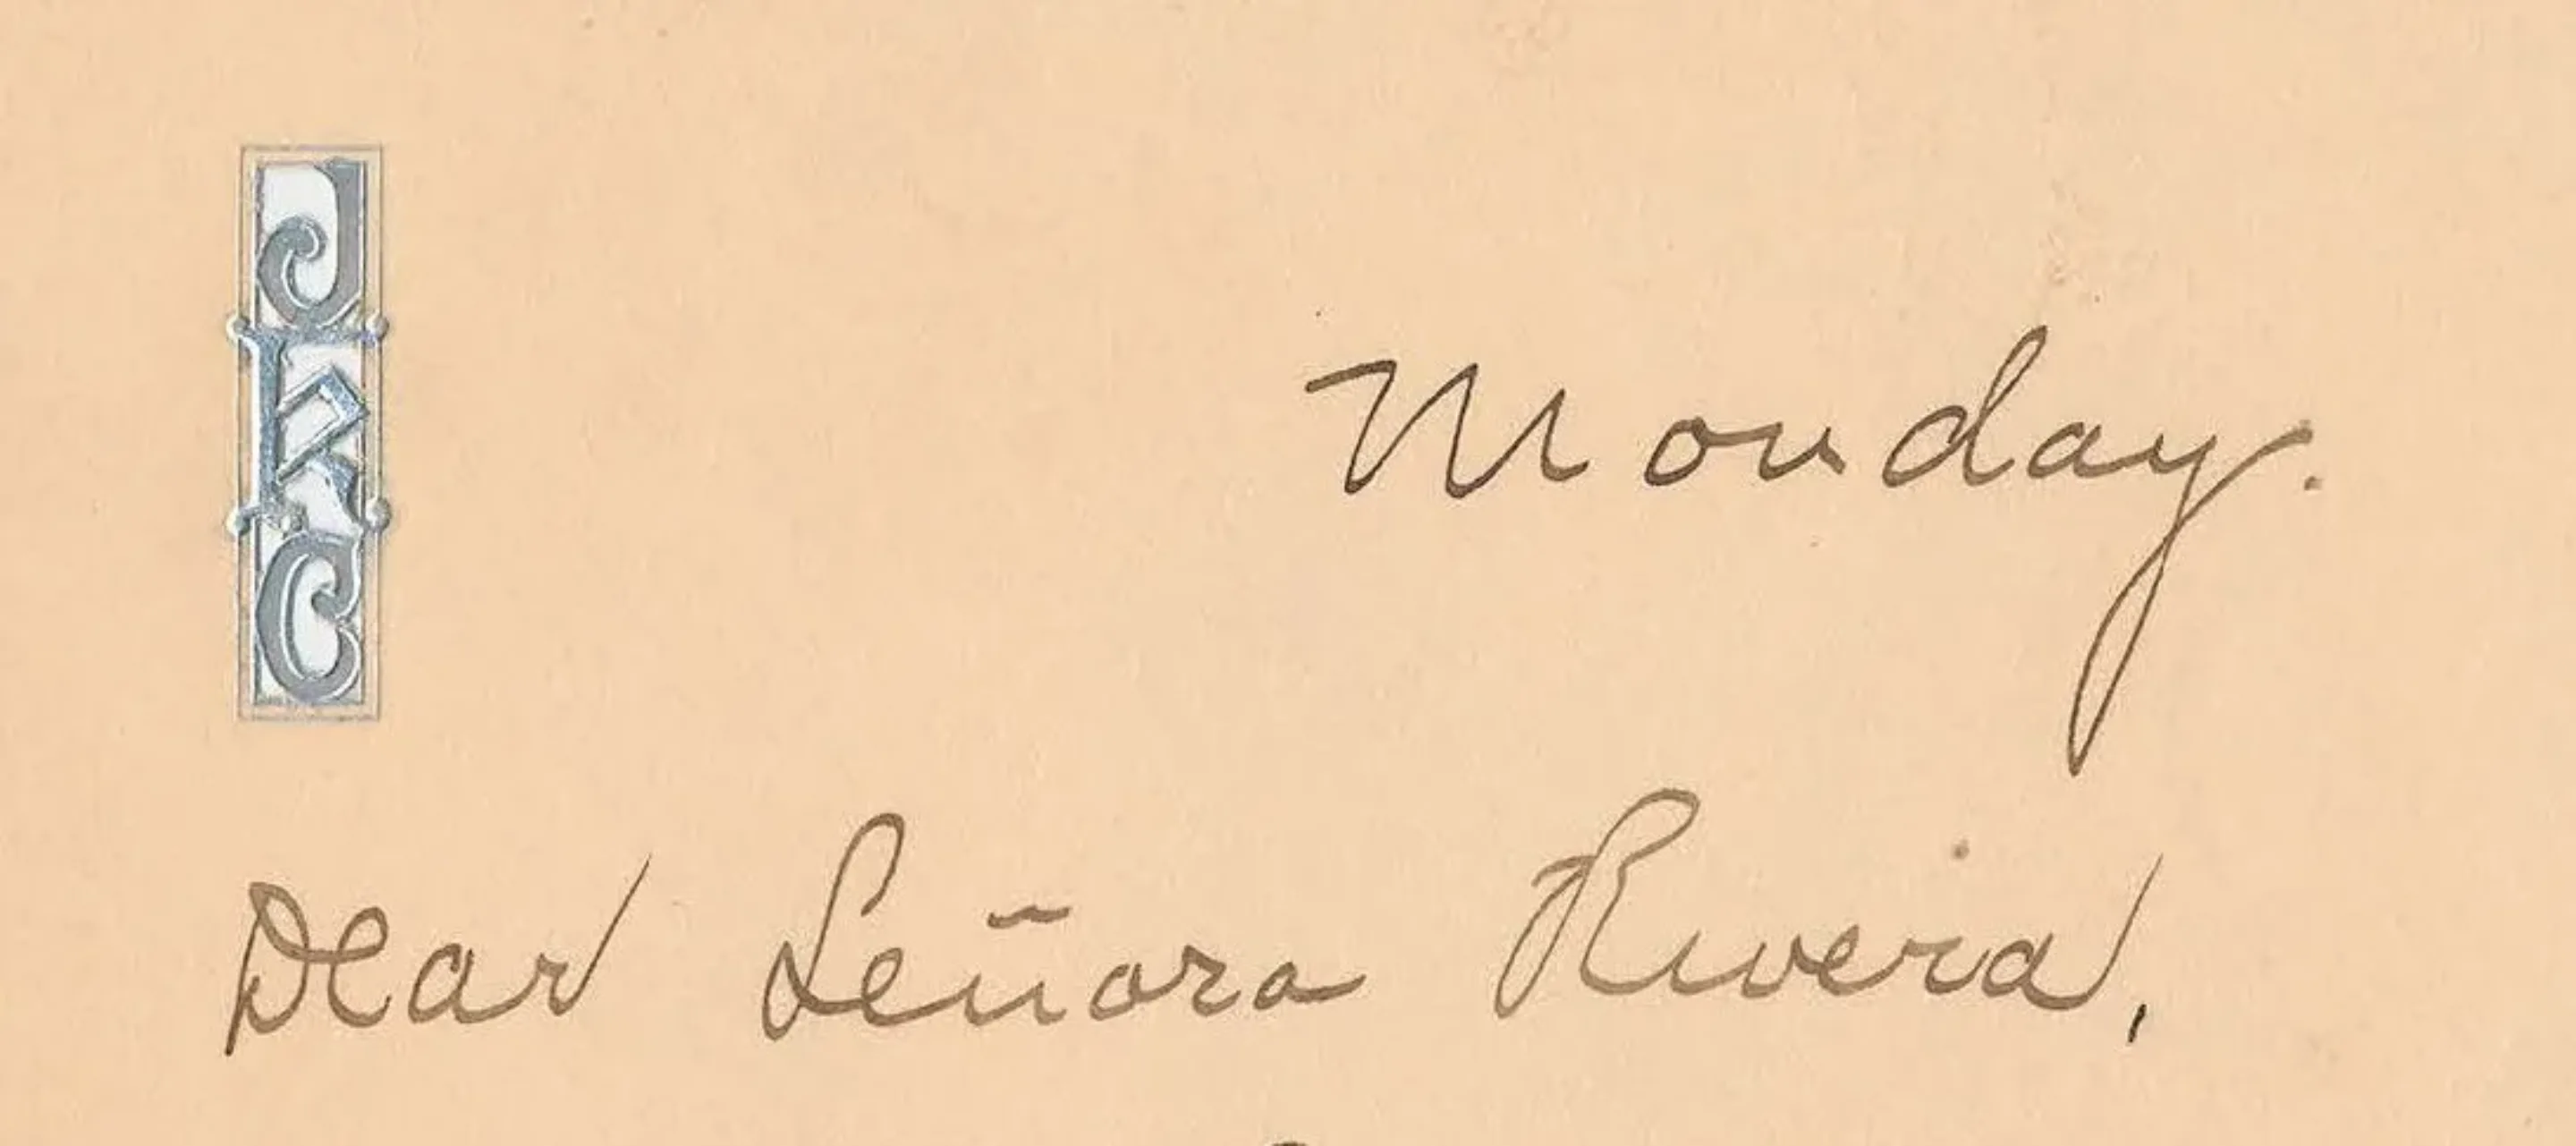 JRC
Monday.
Dear Señora Rivera,